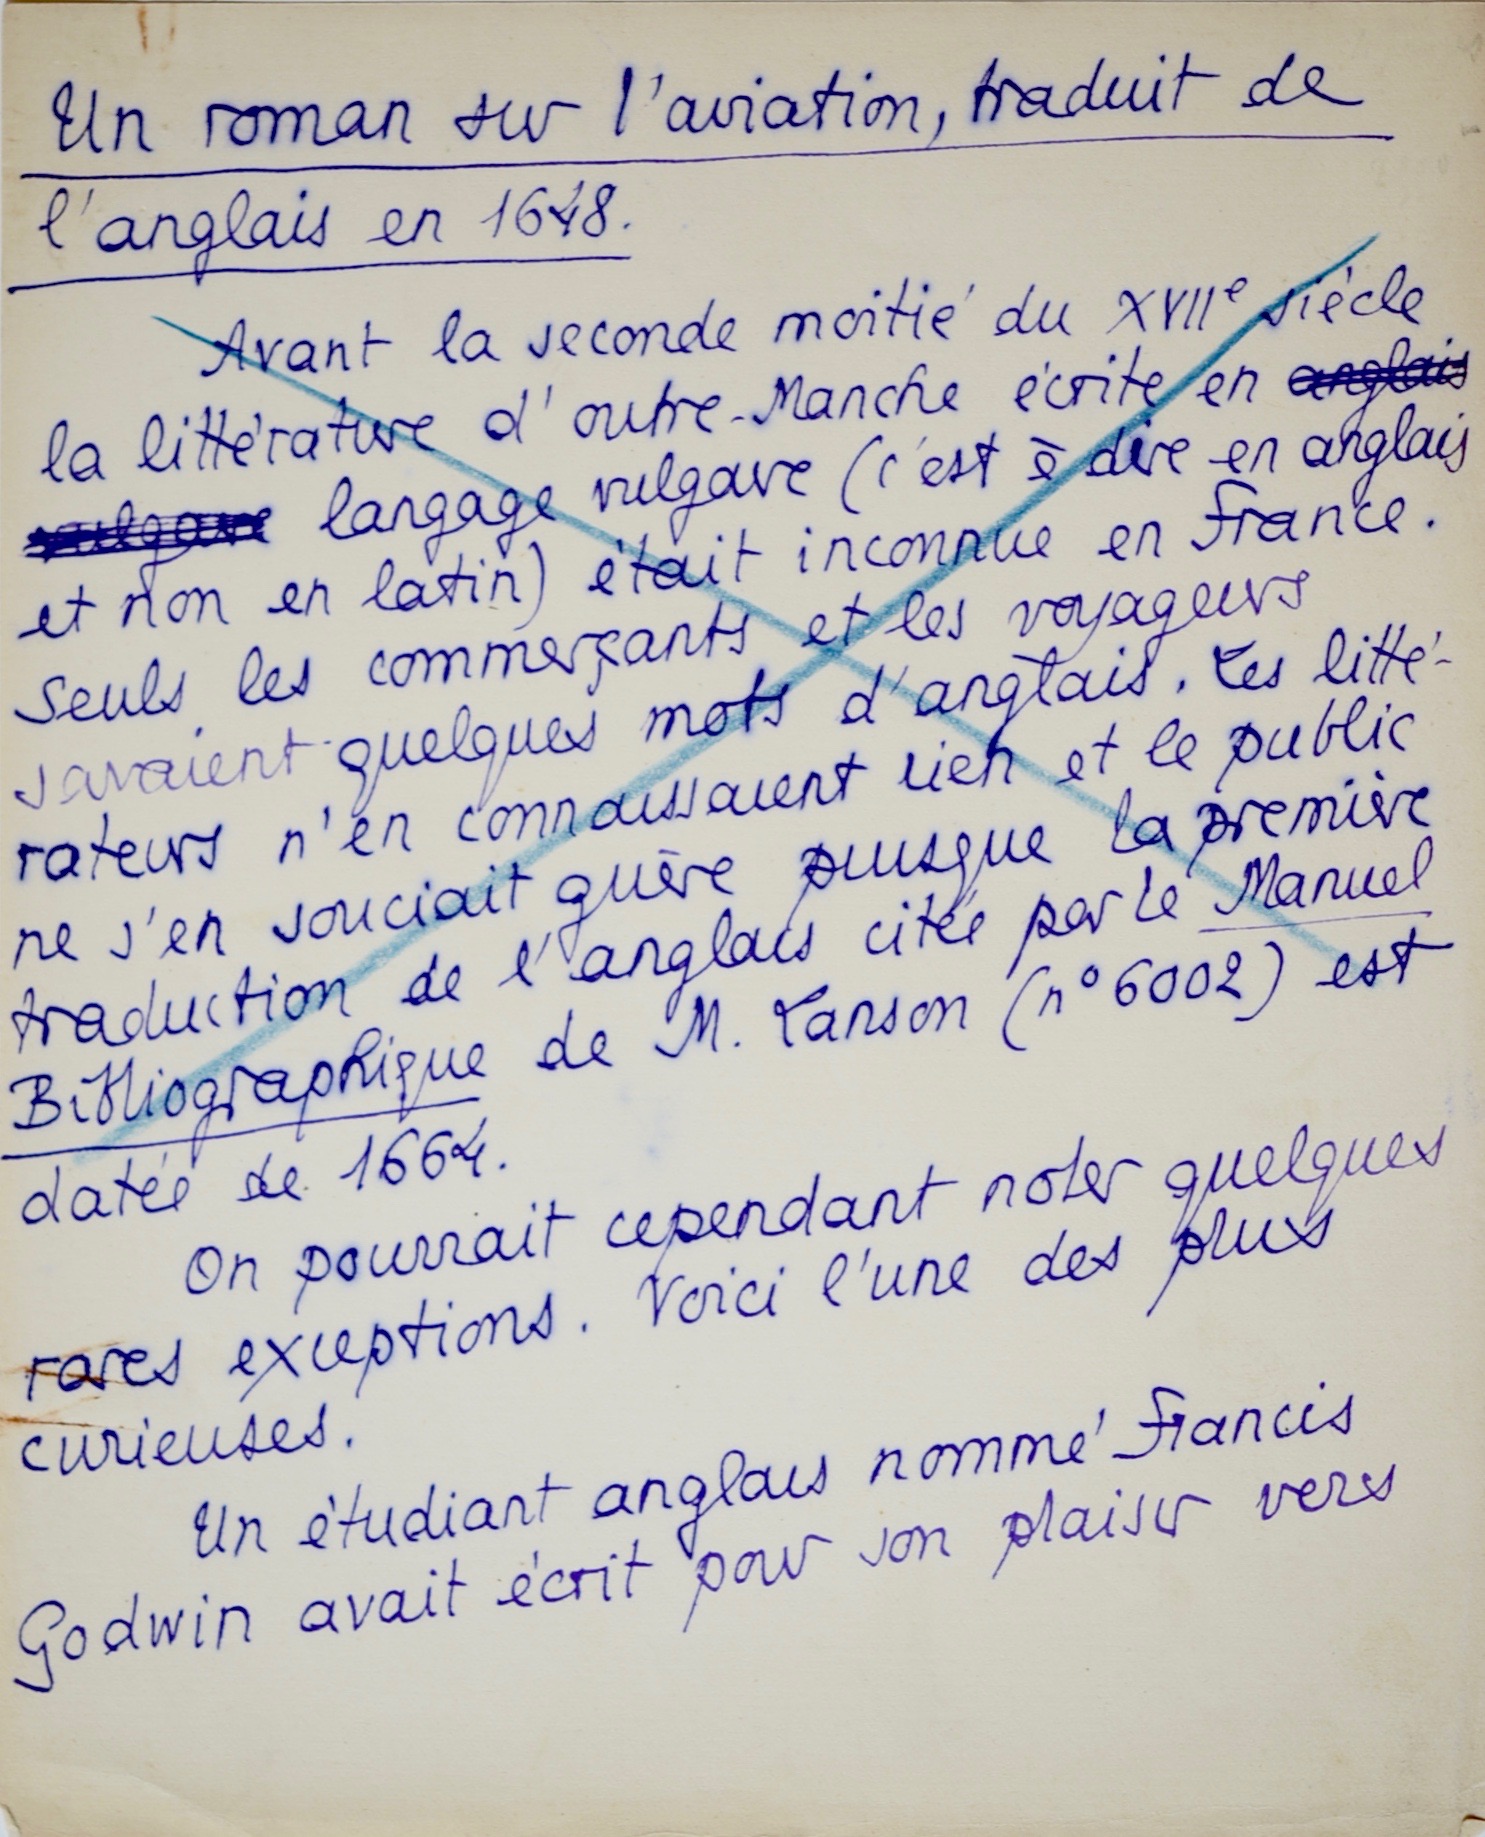 Un roman sur l'aviation, traduit de
l'anglais en 1648.
Avant la seconde moitié du XVIIe siècle
la littérature d'outre-Manche écrite en anglais
vulgaire langage vulgaire (c'est à dire en anglais
et non en latin) était inconnue en France.
Seuls les commerçants et les voyageurs
savaient quelques mots d'anglais. Les litté-
rateurs n'en connaissaient rien et le public
ne s'en souciait guère puisque la première
traduction de l'anglais citée par le Manuel
Bibliographique de M. Lanson (n° 6002) est
datée de 1664.
On pourrait cependant noter quelques
rares exceptions. Voici l'une des plus
curieuses.
Un étudiant anglais nommé Francis
Godwin avait écrit pour son plaisir vers